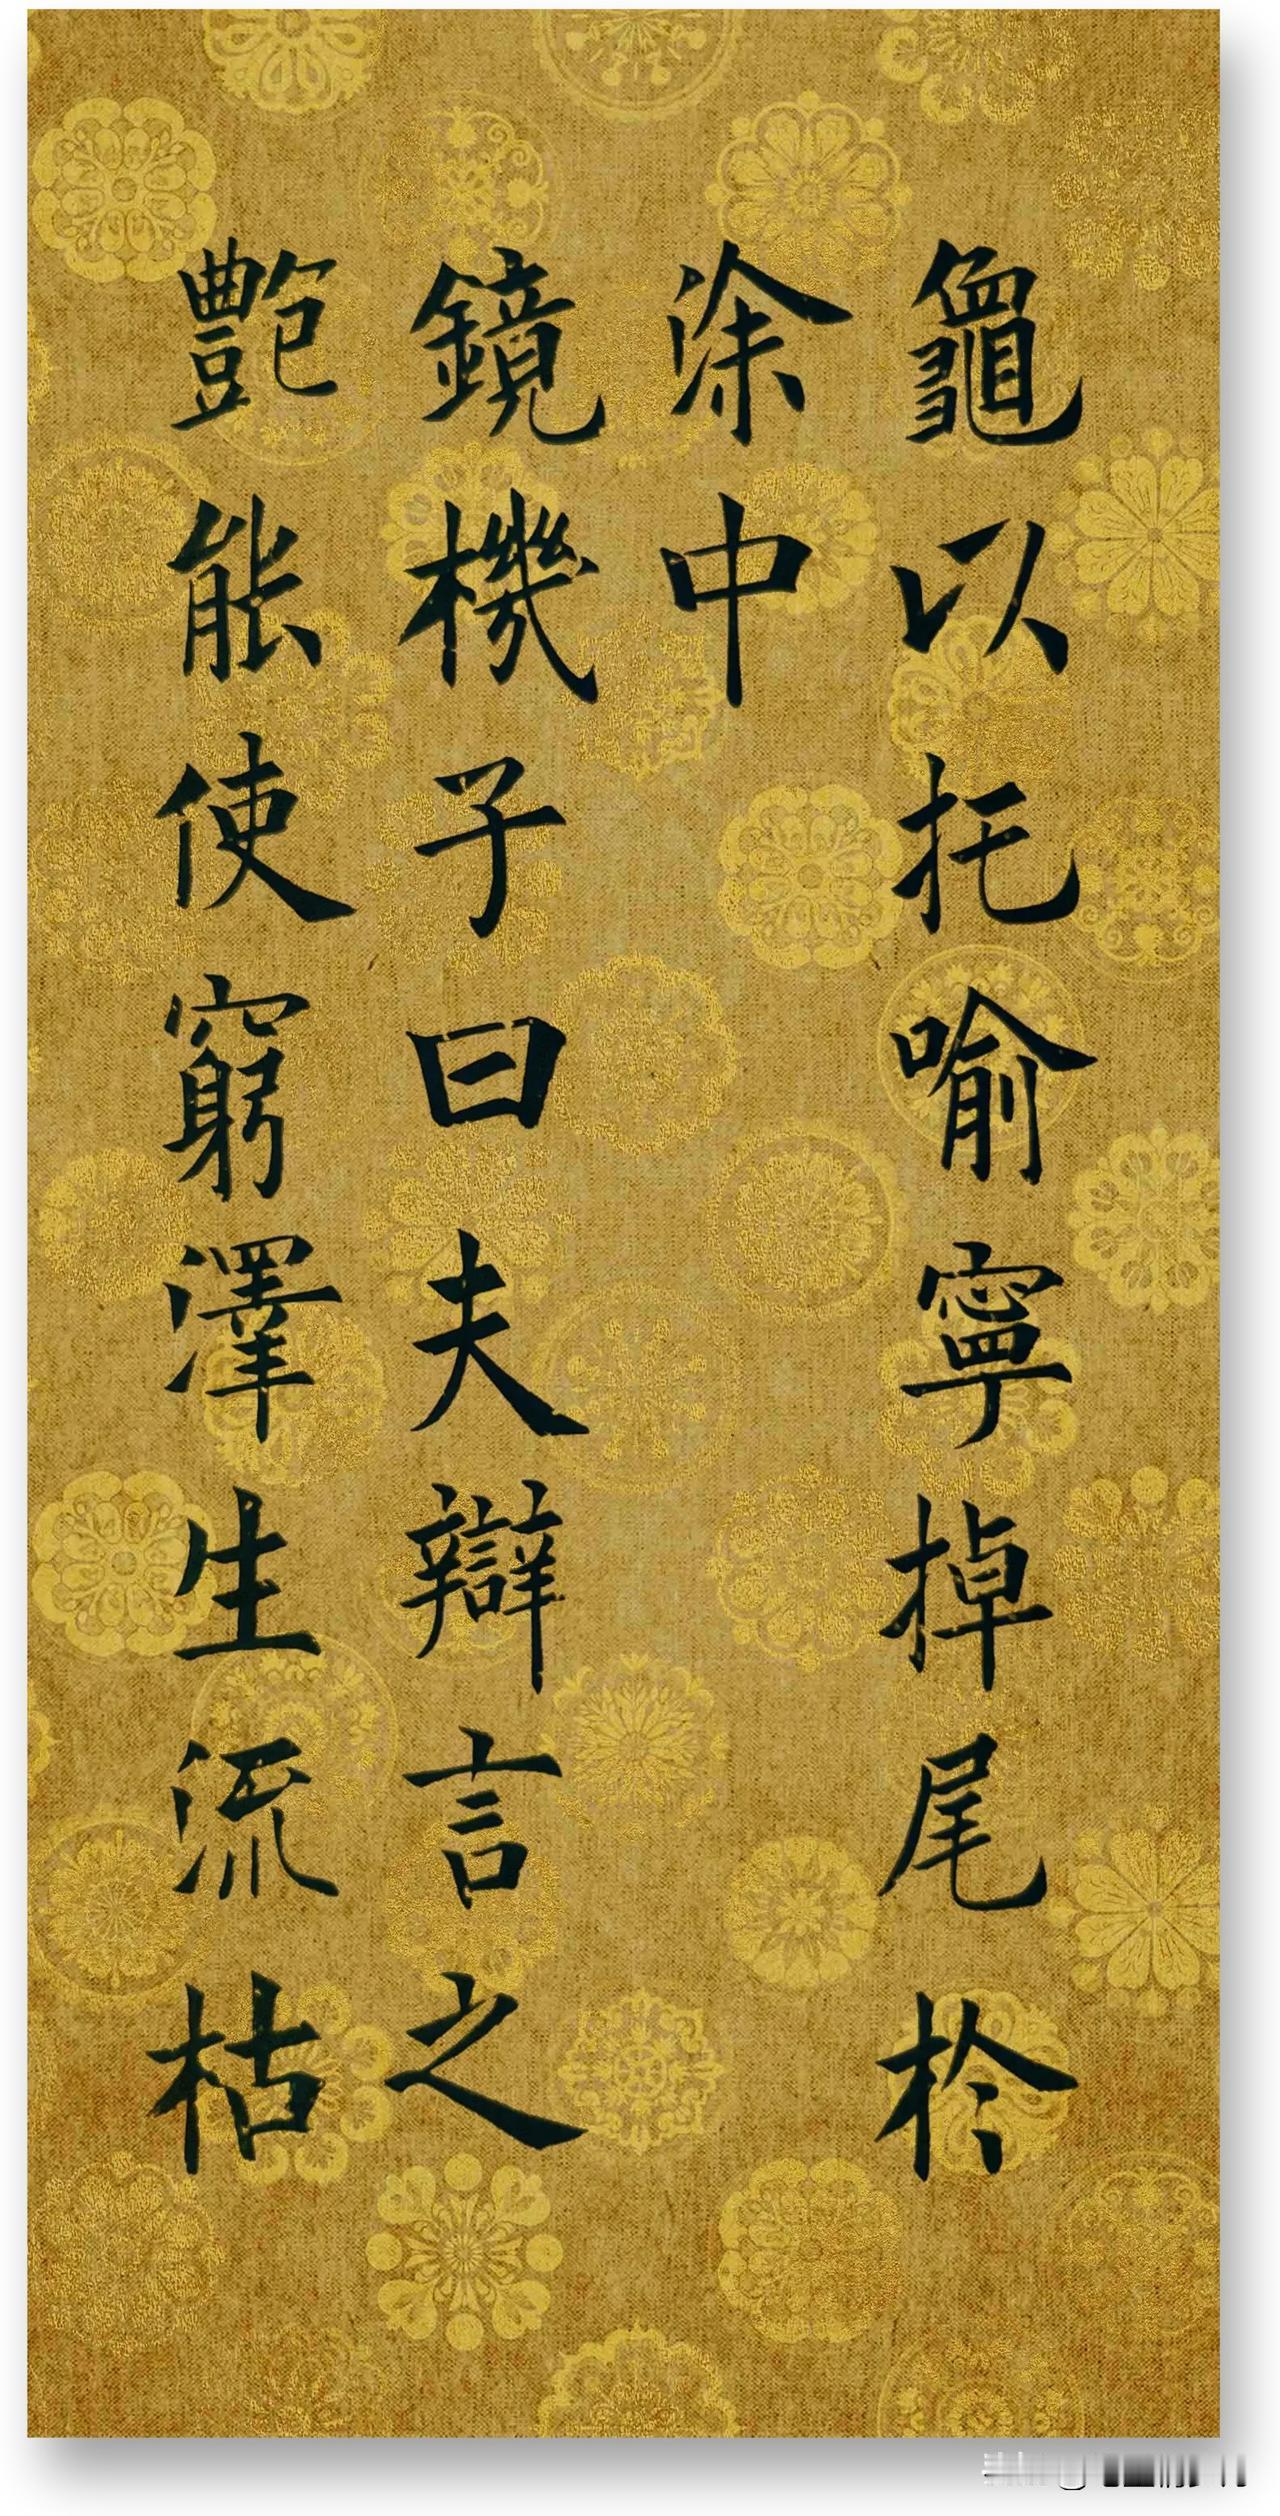 龜以托喻寧掉尾扵
涂中
鏡機子曰夫辯言之
艷能使窮澤生流枯